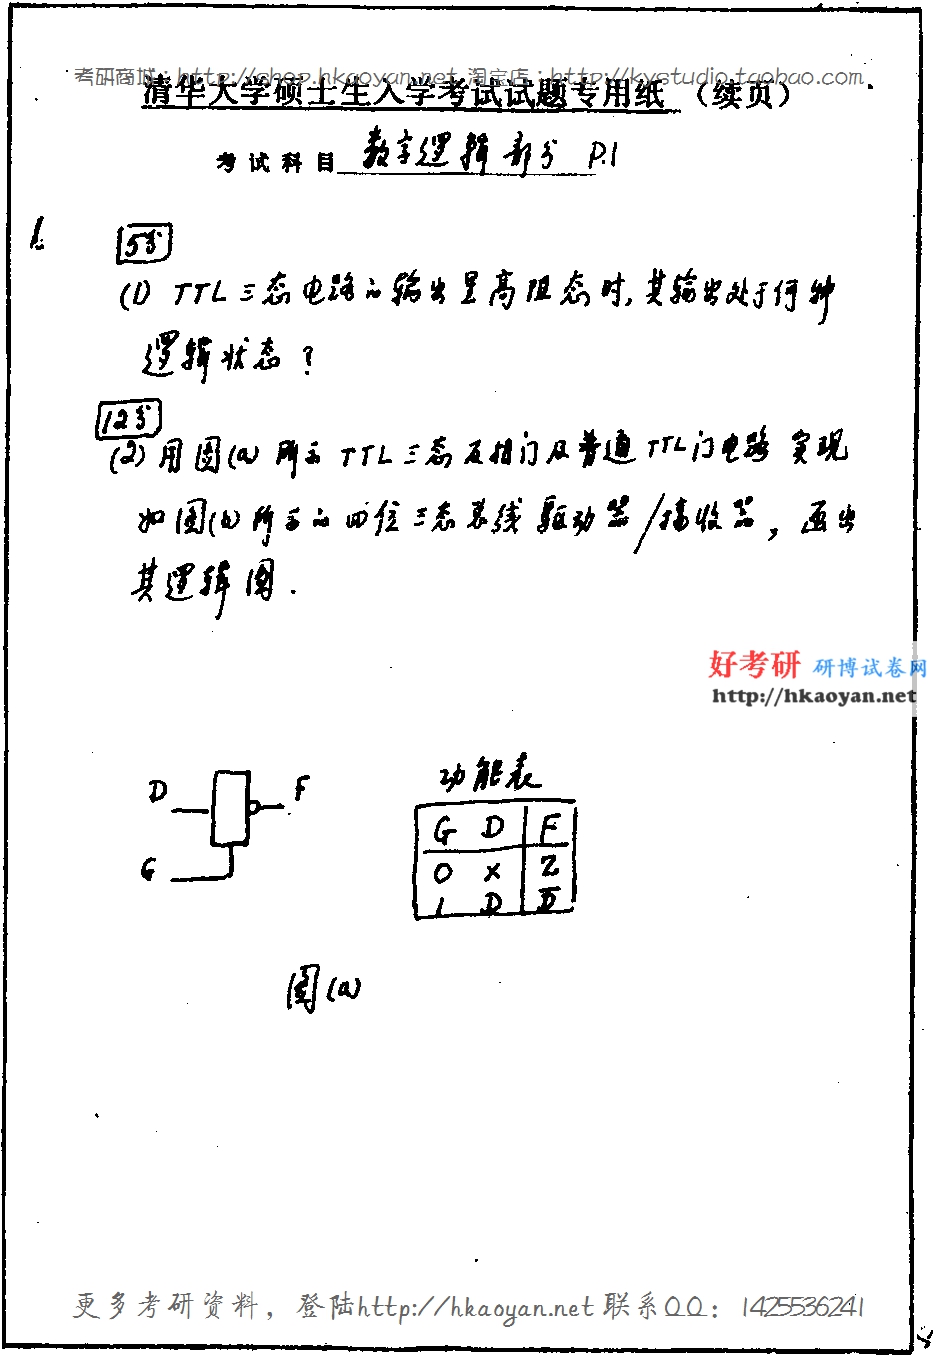 考研商城：http://shop.hkaoyan.net 淘宝店：http://kystudio.taobao.com
清华大学硕士生入学考试试题专用纸 （续页）
考试科目 数字逻辑部分 P.1
1.
5分
(1) TTL三态电路的输出呈高阻态时,其输出处于何种
逻辑状态?
12分
(2) 用图(a)所示TTL三态反相门及普通TTL门电路实现
如图(b)所示的四位三态总线驱动器/接收器，画出
其逻辑图.
好考研 研博试卷网
http://hkaoyan.net
功能表
D F
G
G D F
0 × Z
1 D D̅
图(a)
更多考研资料，登陆http://hkaoyan.net 联系QQ：1425536241